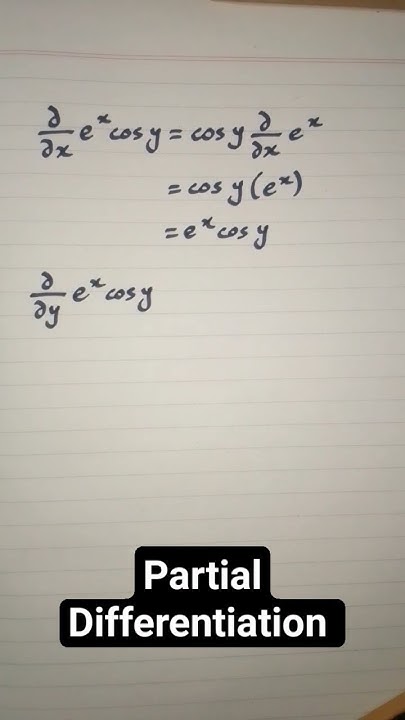 ∂/∂x e^x cos y = cos y ∂/∂x e^x
= cos y (e^x)
= e^x cos y
∂/∂y e^x cos y
Partial
Differentiation